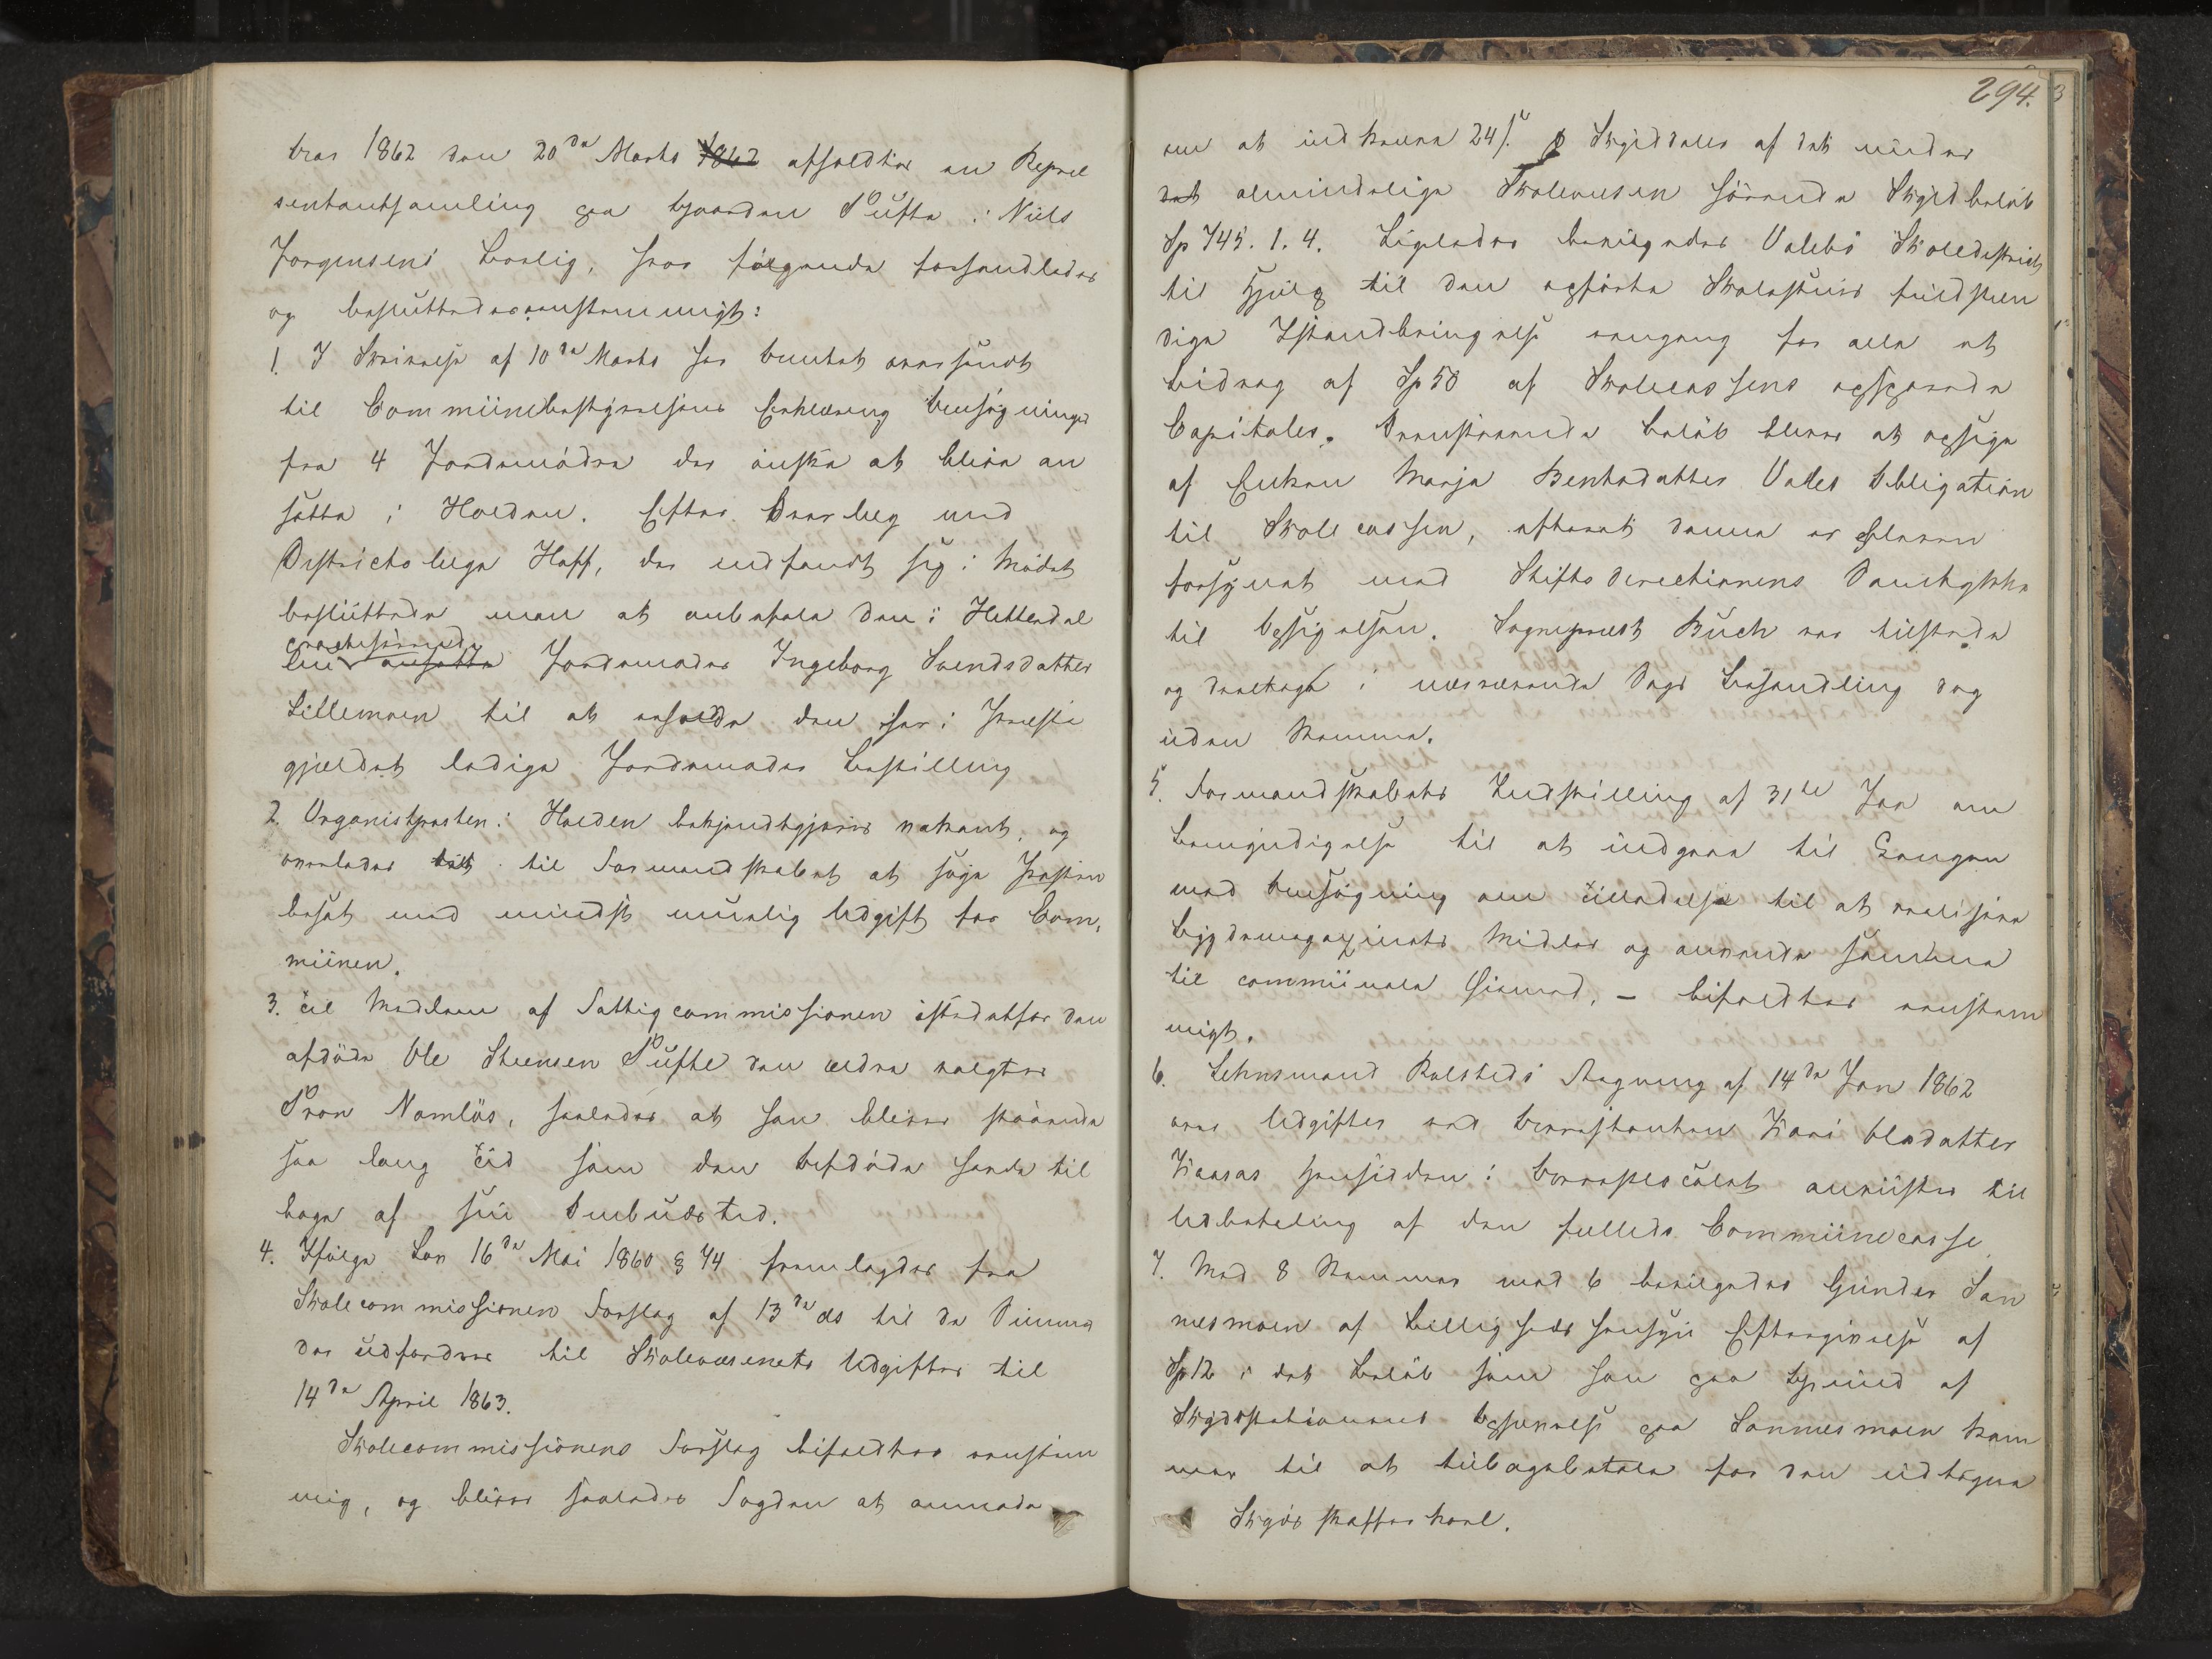 Aar 1862 den 20de Marts 1862 afholdtes en Repræ
sentantsamling paa Gaarden Tufte i Niels
Jørgensens Bolig, hvor følgende forhandledes
og besluttedes eenstemmigt:
1. I Skrivelse af 10de Marts har Amtet oversendt
til Communebestyrelsens Erklæring Ansøgninger
fra 4 Jordemødre der ønske at blive an
satte i Holden. Efter Overlæg med
Districtslæge Hoff, der indfandt sig i Mødet
besluttede man at anbefale den i Hitterdal
practiserende
ansatte Jordemoder Ingeborg Svendsdatter
Lillemoen til at erholde den her i Præste
gjeldet ledige Jordemoder Bestilling
2. Organistposten i Holden bekjendtgjøres vakant, og
overlades det til Formandskabet at søge Posten
besat med mindst muelig Udgift for Com,
munen.
3. Til Medlem af Fattigcommissionen istedetfor den
afdøde Ole Steensen Tufte den ældre valgtes
Tron Namløs, saaledes at han bliver staaende
saa lang Tid som den Afdøde havde til
bage af sin Ombudstid.
4. Ifølge Lov 16de Mai 1860 § 74 fremlagdes fra
Skolecommissionen Forslag af 13de ds til de Summa
der udfordres til Skolevæsenets Udgifter til
14de April 1863.
Skolecommissionens Forslag bifaldtes eenstem
mig, og bliver saaledes Fogden at anmode
294.
om at indkræve 24 s. p Skylddaler af det under
det almindelige Skolevæsen hørende Skyldbeløb
Sp 745. 1. 4. Ligeledes bevilgedes Valebø Skoledistrict
til Hjelp til den opførte Skolestues fuldstæn
dige Istandbringelse eengang for alle et
Bidrag af Sp 50 af Skolecassens opsparede
Capitaler. Ovenstaaende Beløb bliver at opsige
af Enken Marja Bentsdatter Vales Obligation
til Skolecassen, efterat denne er bleven
forsynet med Stiftsdirectionens Samtykke
til Opsigelsen. Sogneprest Buch var tilstede
og deeltage i nærværende Sags Behandling dog
uden Stemme.
5. Formandskabets Indstilling af 31te Jan om
Bemyndigelse til at indgaae til Kongen
med Ansøgning om Tilladelse til at realisere
Bygdemagazinets Midler og anvende samme
til communale Øiemed, – bifaldtes eenstem
migt.
6. Lehnsmand Rolsteds Regning af 14de Jan 1862
over Udgifter ved Arrestanten Kari Olsdatter
Kaasas Hensidden i Arrestlocalet anvistes til
Udbetaling af den fælleds Communecasse
7. Med 8 Stemmer mod 6 bevilgedes Gunder San
nesmoen af Billighedshensyn Eftergivelse af
Sp 12 i det Beløb som han paa Grund af
Skydsstationens Ophævelse paa Sannesmoen kom
mer til at tilbagebetale for den udtagne
Skydsskafferkarl.